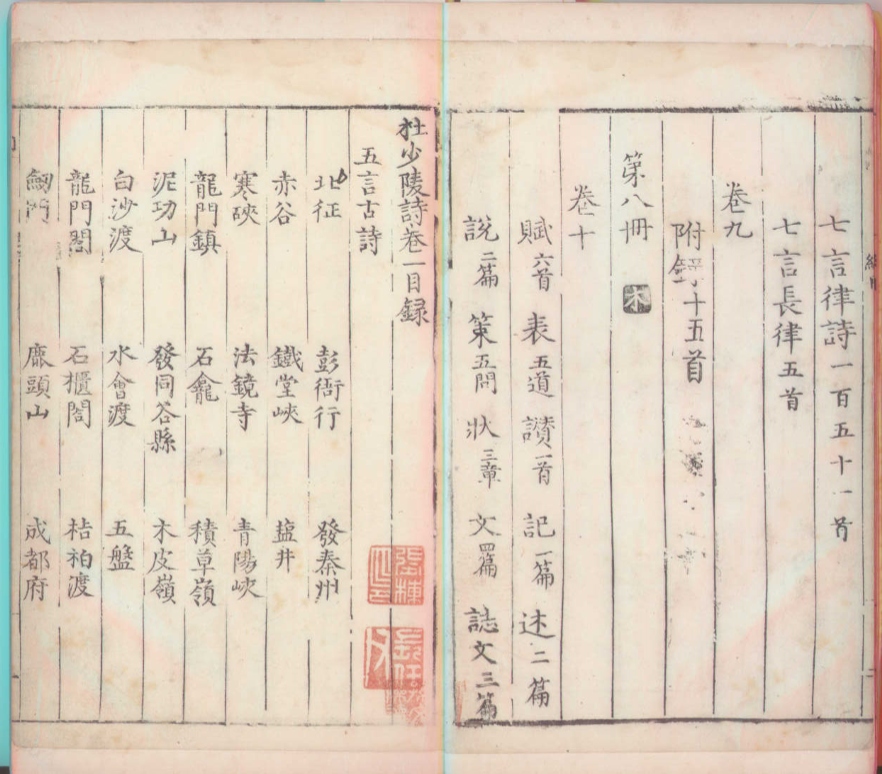 七言律詩一百五十一首
七言長律五首
卷九
附錄十五首
第八冊 木
卷十
賦六首 表五道 讃一首 記一篇 述二篇
說二篇 策五問 狀三章 文四篇 誌文三篇
杜少陵詩卷一目録
五言古詩
北征 彭衙行 發秦州
赤谷 鐵堂峽 鹽井
寒硤 法鏡寺 青陽峽
龍門鎮 石龕 積草嶺
泥功山 發同谷縣 木皮嶺
白沙渡 水會渡 五盤
龍門閣 石櫃閣 桔柏渡
劒門 鹿頭山 成都府